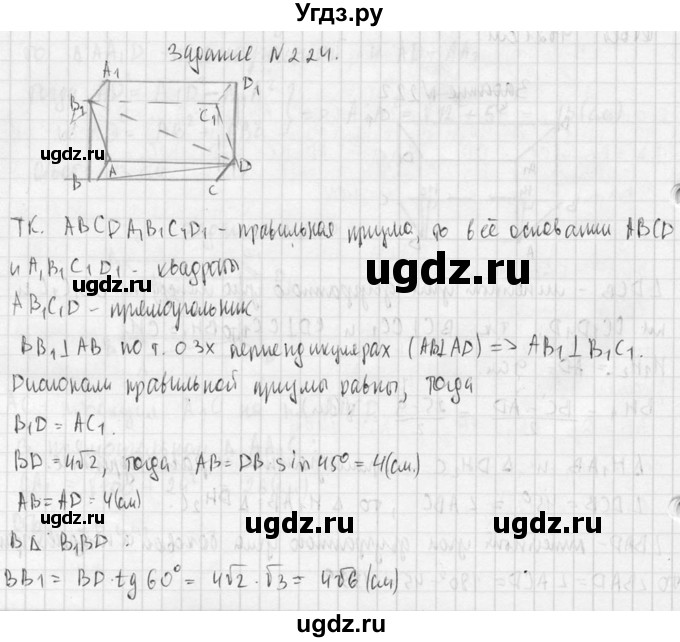 Угдз.ру
Задание N224.
A1
D1
B1
C1
ugdz.ru
A
D
B
C
ТК. ABCDA1B1C1D1 - правильная призма, то в её основании ABCD
ugdz.ru
и A1B1C1D1 - квадраты
ugdz.ru
AB1C1D - прямоугольник
BB1⊥AB по т. о 3х перпендикулярах (AB⊥AD) => AB1⊥B1C1.
Диагонали правильной призмы равны, тогда
B1D = AC1.
ugdz.ru
BD = 4√2, тогда AB = DB sin 45° = 4 (см.)
AB = AD = 4 (см)
ugdz.ru
ugdz.ru
В Δ B1BD:
BB1 = BD · tg 60° = 4√2 · √3 = 4√6 (см)
ugdz.ru